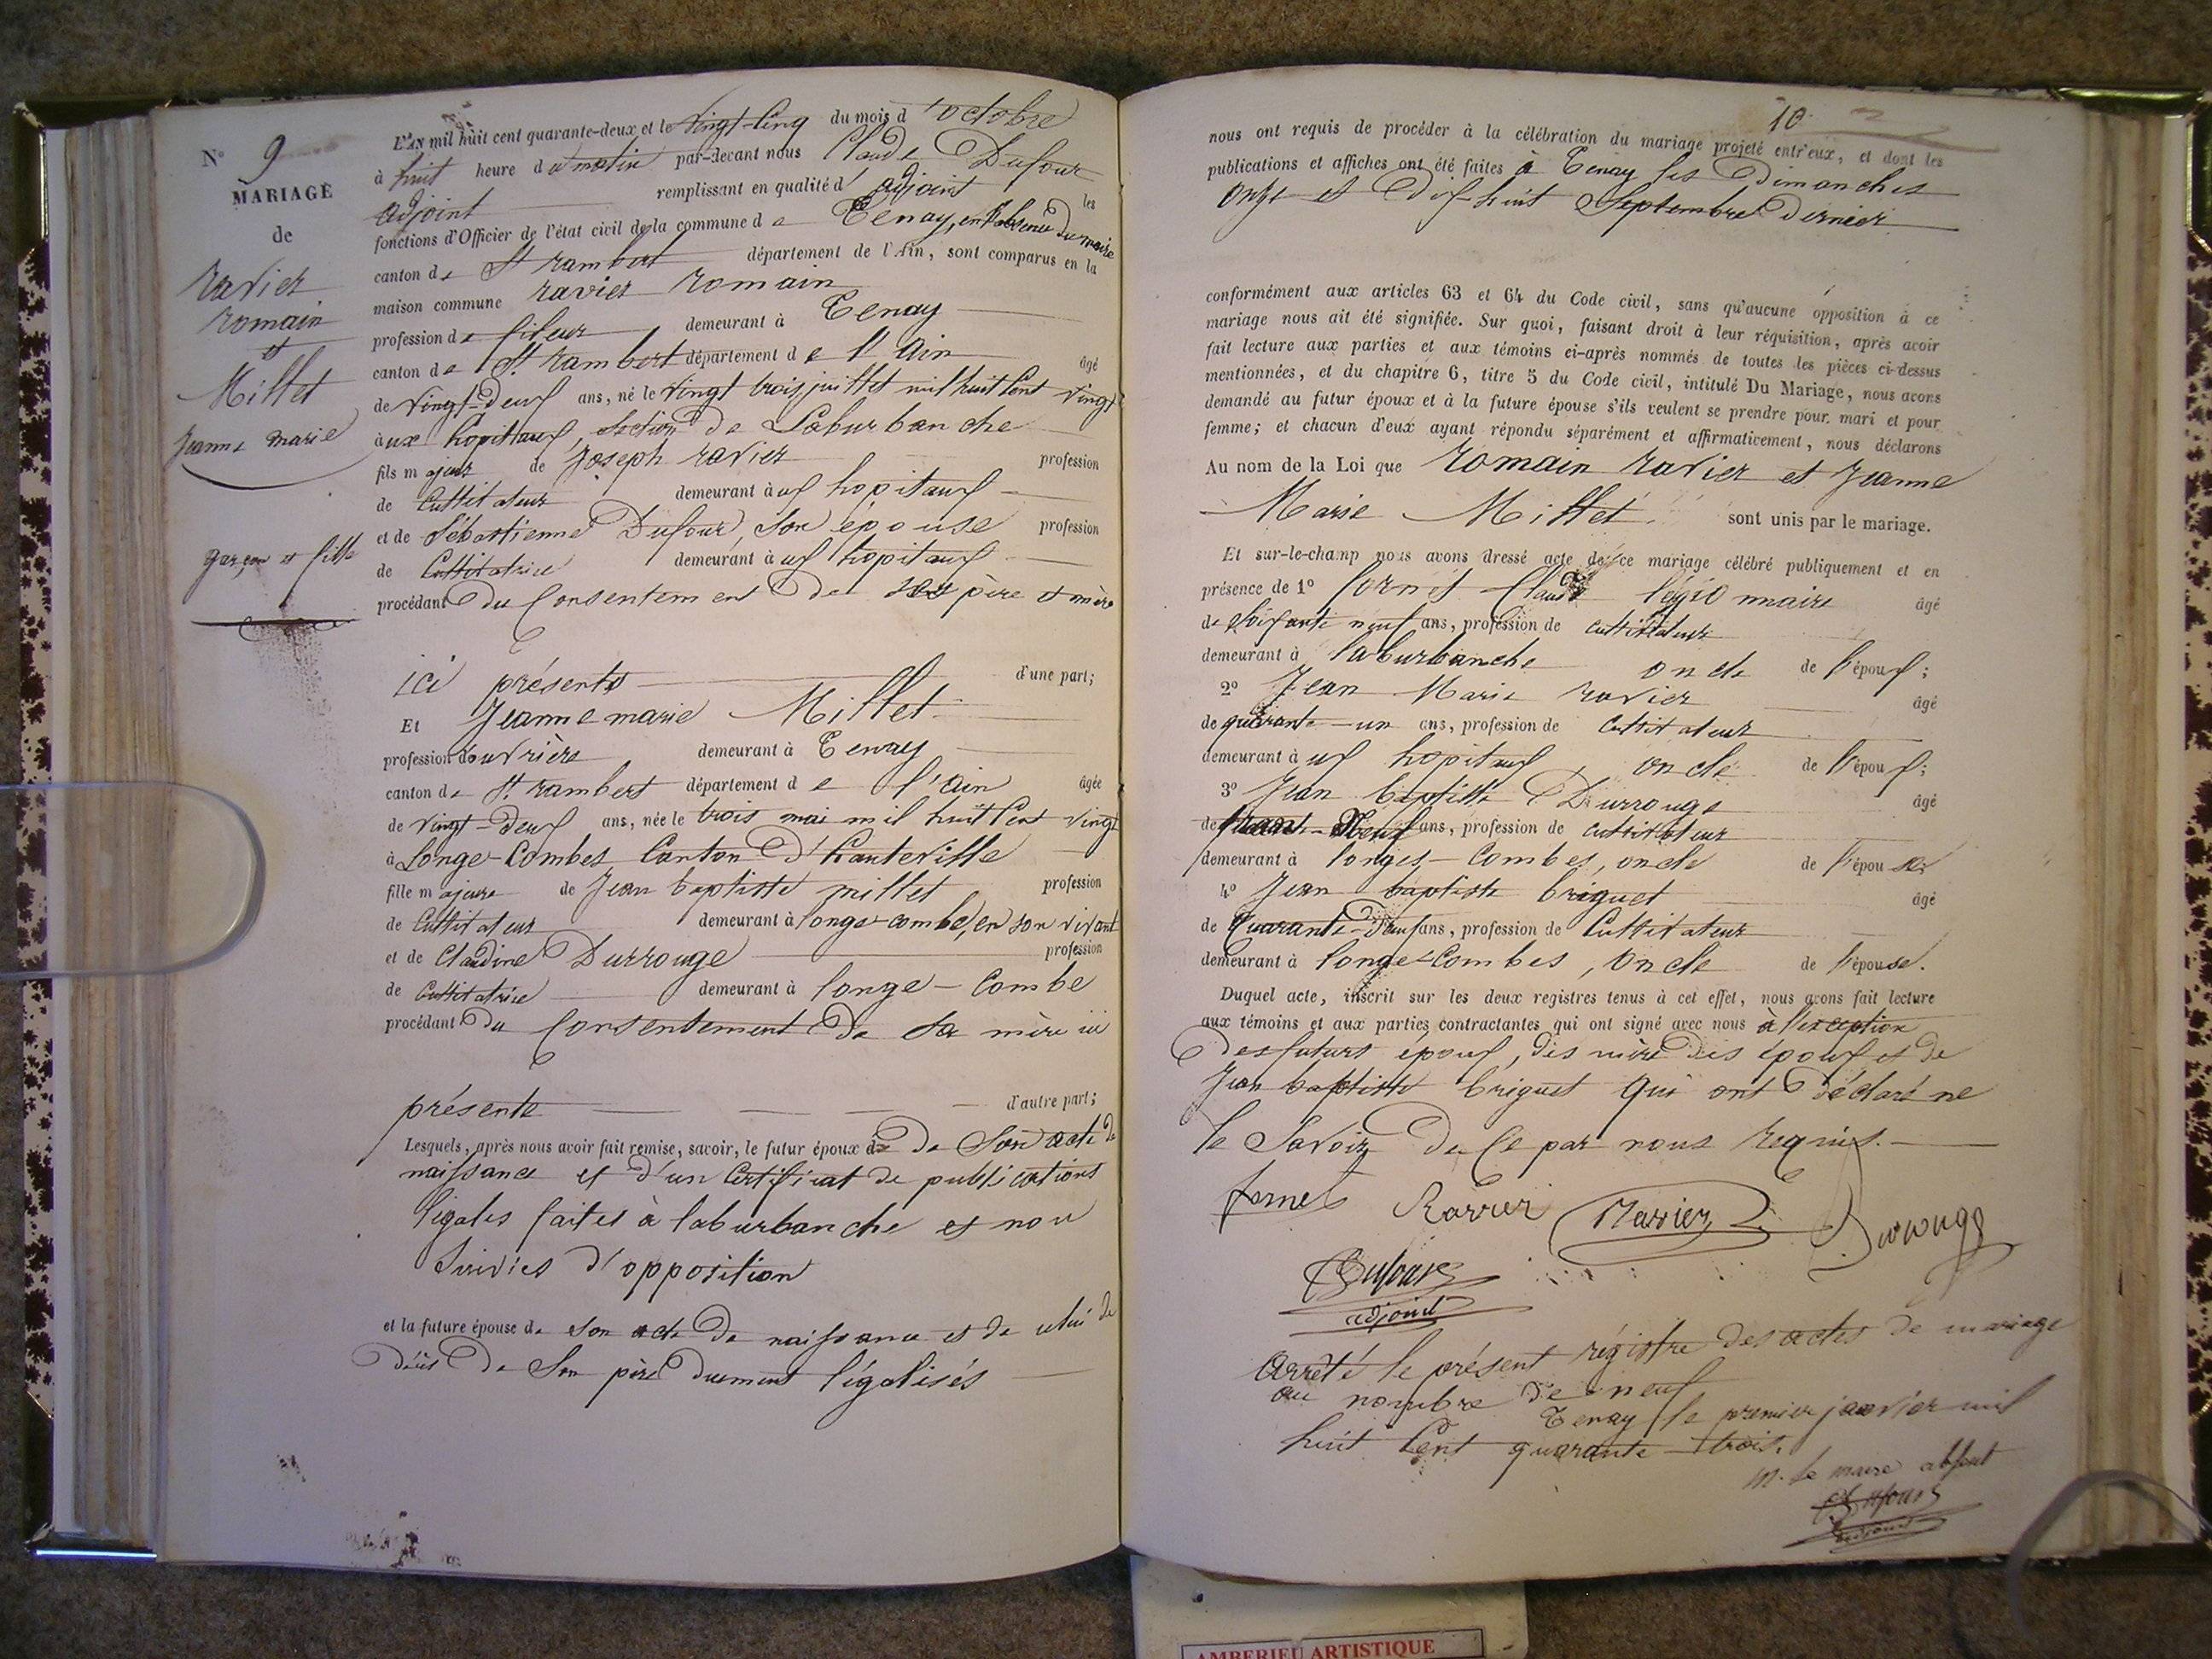 N° 9
MARIAGE
de
ravier
romain
et
Millet
Jeanne marie
garçon et fille
L'AN mil huit cent quarante-deux et le vingt-cinq du mois d'octobre
à huit heure du matin par-devant nous Claude Dufour
adjoint remplissant en qualité d'adjoint les
fonctions d'Officier de l'état civil de la commune de Tenay, en l'absence du maire
canton de St rambert département de l'Ain, sont comparus en la
maison commune ravier romain
profession de fileur demeurant à Tenay
canton de St rambert département de l'Ain âgé
de vingt-deux ans, né le vingt trois juillet mil huit cent vingt
aux hopitaux, section de Laburbanche
fils majeur de Joseph ravier profession
de Cultivateur demeurant aux hopitaux
et de Sébastienne Dufour, son épouse profession
de Cultivatrice demeurant aux hopitaux
procédant du Consentement de ses père et mère
ici présents d'une part;
Et Jeanne marie Millet
profession d'ouvrière demeurant à Tenay
canton de St rambert département de l'ain âgée
de vingt-deux ans, née le trois mai mil huit Cent vingt
à Longe-Combes Canton d'hauteville
fille majeure de Jean baptiste millet profession
de Cultivateur demeurant à longe-combe, en son vivant
et de Claudine Durrouge profession
de Cultivatrice demeurant à longe-Combe
procédant du Consentement de sa mère ici
présente d'autre part;
Lesquels, après nous avoir fait remise, savoir, le futur époux de de Son acte de
naissance et d'un Certificat de publications
légales faites à laburbanche et non
suivies d'opposition
et la future épouse de son acte de naissance et de celui de
décès de Son père duement légalisés
10
nous ont requis de procéder à la célébration du mariage projeté entr'eux, et dont les
publications et affiches ont été faites à Tenay les Dimanches
onze et dix-huit Septembre dernier
conformément aux articles 63 et 64 du Code civil, sans qu'aucune opposition à ce
mariage nous ait été signifiée. Sur quoi, faisant droit à leur réquisition, après avoir
fait lecture aux parties et aux témoins ci-après nommés de toutes les pièces ci-dessus
mentionnées, et du chapitre 6, titre 5 du Code civil, intitulé Du Mariage, nous avons
demandé au futur époux et à la future épouse s'ils veulent se prendre pour mari et pour
femme; et chacun d'eux ayant répondu séparément et affirmativement, nous déclarons
Au nom de la Loi que romain ravier et Jeanne
Marie Millet sont unis par le mariage.
Et sur-le-champ nous avons dressé acte de ce mariage célébré publiquement et en
présence de 1° Claude légionnaire âgé
de soixante neuf ans, profession de cultivateur
demeurant à laburbanche oncle de l'époux;
2° Jean Marie ravier âgé
de quarante-un ans, profession de Cultivateur
demeurant aux hopitaux, oncle de l'époux;
3° Jean baptiste Durrouge âgé
de ans, profession de cultivateur
demeurant à longes-Combes, oncle de l'épouse
4° Jean baptiste briguet âgé
de Quarante-deux ans, profession de Cultivateur
demeurant à longe-Combes, oncle de l'épouse.
Duquel acte, inscrit sur les deux registres tenus à cet effet, nous avons fait lecture
aux témoins et aux parties contractantes qui ont signé avec nous à l'exception
des futurs époux, des mère des époux et de
Jean baptiste briguet qui ont déclaré ne
le savoir de ce par nous requis.
Ravier Ravier Durrouge
Dufour
adjoint
Arrêté le présent régistre des actes de mariage
au nombre de neuf
Tenay le premier janvier mil
huit Cent quarante-trois.
M. le maire absent
Dufour
adjoint
AMBERIEU ARTISTIQUE